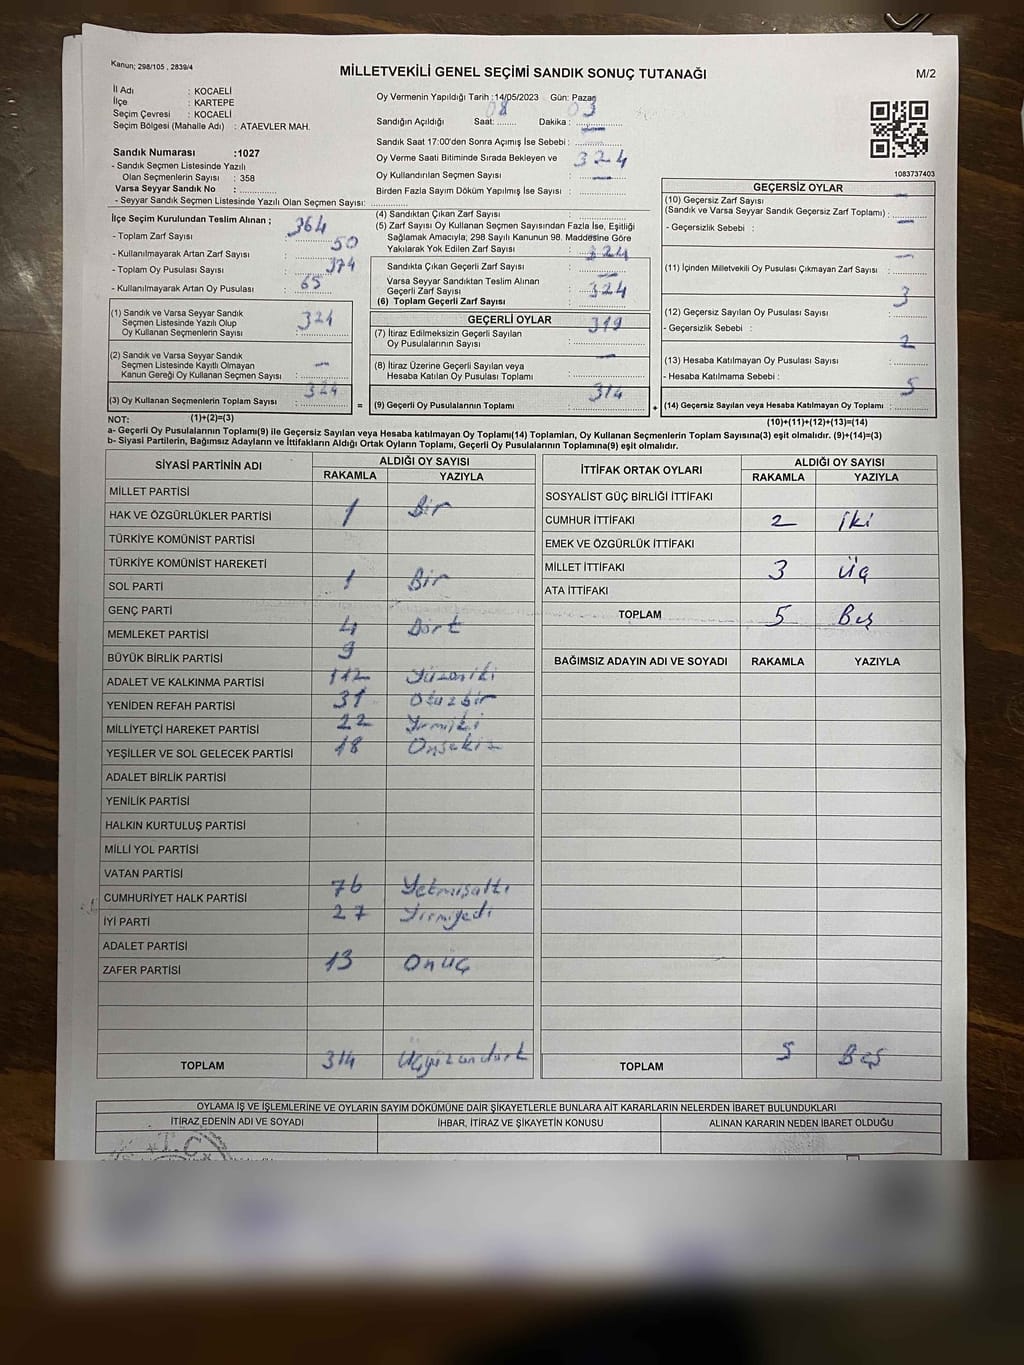 Kanun; 298/105 , 2839/4
MİLLETVEKİLİ GENEL SEÇİMİ SANDIK SONUÇ TUTANAĞI
M/2
İl Adı : KOCAELİ
İlçe : KARTEPE
Seçim Çevresi : KOCAELİ
Seçim Bölgesi (Mahalle Adı) : ATAEVLER MAH.
Sandık Numarası :1027
- Sandık Seçmen Listesinde Yazılı
Olan Seçmenlerin Sayısı : 358
Varsa Seyyar Sandık No : ............
- Seyyar Sandık Seçmen Listesinde Yazılı Olan Seçmen Sayısı: ............
Oy Vermenin Yapıldığı Tarih :14/05/2023 Gün: Pazar
Sandığın Açıldığı Saat: 08 Dakika : 03
Sandık Saat 17:00'den Sonra Açımış İse Sebebi : —
Oy Verme Saati Bitiminde Sırada Bekleyen ve
Oy Kullandırılan Seçmen Sayısı : 324
Birden Fazla Sayım Döküm Yapılmış İse Sayısı : —
1083737403
İlçe Seçim Kurulundan Teslim Alınan ;
- Toplam Zarf Sayısı : 364
- Kullanılmayarak Artan Zarf Sayısı : 50
- Toplam Oy Pusulası Sayısı : 374
- Kullanılmayarak Artan Oy Pusulası : 65
(1) Sandık ve Varsa Seyyar Sandık
Seçmen Listesinde Yazılı Olup
Oy Kullanan Seçmenlerin Sayısı : 324
(2) Sandık ve Varsa Seyyar Sandık
Seçmen Listesinde Kayıtlı Olmayan
Kanun Gereği Oy Kullanan Seçmen Sayısı : —
(3) Oy Kullanan Seçmenlerin Toplam Sayısı : 324
(1)+(2)=(3)
(4) Sandıktan Çıkan Zarf Sayısı :
(5) Zarf Sayısı Oy Kullanan Seçmen Sayısından Fazla İse, Eşitliği
Sağlamak Amacıyla; 298 Sayılı Kanunun 98. Maddesine Göre
Yakılarak Yok Edilen Zarf Sayısı :
Sandıkta Çıkan Geçerli Zarf Sayısı : 324
Varsa Seyyar Sandıktan Teslim Alınan
Geçerli Zarf Sayısı : —
(6) Toplam Geçerli Zarf Sayısı : 324
GEÇERLİ OYLAR
(7) İtiraz Edilmeksizin Geçerli Sayılan
Oy Pusulalarının Sayısı : 319
(8) İtiraz Üzerine Geçerli Sayılan veya
Hesaba Katılan Oy Pusulası Toplamı : —
= (9) Geçerli Oy Pusulalarının Toplamı : 314 +
GEÇERSİZ OYLAR
(10) Geçersiz Zarf Sayısı —
(Sandık ve Varsa Seyyar Sandık Geçersiz Zarf Toplamı) :
- Geçersizlik Sebebi : —
(11) İçinden Milletvekili Oy Pusulası Çıkmayan Zarf Sayısı : —
(12) Geçersiz Sayılan Oy Pusulası Sayısı : 3
- Geçersizlik Sebebi :
(13) Hesaba Katılmayan Oy Pusulası Sayısı : 2
- Hesaba Katılmama Sebebi :
(14) Geçersiz Sayılan veya Hesaba Katılmayan Oy Toplamı : 5
(10)+(11)+(12)+(13)=(14)
NOT:
a- Geçerli Oy Pusulalarının Toplamı(9) ile Geçersiz Sayılan veya Hesaba katılmayan Oy Toplamı(14) Toplamları, Oy Kullanan Seçmenlerin Toplam Sayısına(3) eşit olmalıdır. (9)+(14)=(3)
b- Siyasi Partilerin, Bağımsız Adayların ve İttifakların Aldığı Ortak Oyların Toplamı, Geçerli Oy Pusulalarının Toplamına(9) eşit olmalıdır.
SİYASİ PARTİNİN ADI ALDIĞI OY SAYISI
RAKAMLA YAZIYLA
MİLLET PARTİSİ
HAK VE ÖZGÜRLÜKLER PARTİSİ 1 Bir
TÜRKİYE KOMÜNİST PARTİSİ
TÜRKİYE KOMÜNİST HAREKETİ
SOL PARTİ 1 Bir
GENÇ PARTİ
MEMLEKET PARTİSİ 4 Dört
BÜYÜK BİRLİK PARTİSİ 9
ADALET VE KALKINMA PARTİSİ 112 Yüzoniki
YENİDEN REFAH PARTİSİ 31 Otuzbir
MİLLİYETÇİ HAREKET PARTİSİ 22 Yirmiiki
YEŞİLLER VE SOL GELECEK PARTİSİ 18 Onsekiz
ADALET BİRLİK PARTİSİ
YENİLİK PARTİSİ
HALKIN KURTULUŞ PARTİSİ
MİLLİ YOL PARTİSİ
VATAN PARTİSİ
CUMHURİYET HALK PARTİSİ 76 Yetmişaltı
İYİ PARTİ 27 Yirmiyedi
ADALET PARTİSİ
ZAFER PARTİSİ 13 Onüç
TOPLAM 314 Üçyüzondört
İTTİFAK ORTAK OYLARI ALDIĞI OY SAYISI
RAKAMLA YAZIYLA
SOSYALİST GÜÇ BİRLİĞİ İTTİFAKI
CUMHUR İTTİFAKI 2 İki
EMEK VE ÖZGÜRLÜK İTTİFAKI
MİLLET İTTİFAKI 3 Üç
ATA İTTİFAKI
TOPLAM 5 Beş
BAĞIMSIZ ADAYIN ADI VE SOYADI RAKAMLA YAZIYLA
TOPLAM 5 Beş
OYLAMA İŞ VE İŞLEMLERİNE VE OYLARIN SAYIM DÖKÜMÜNE DAİR ŞİKAYETLERLE BUNLARA AİT KARARLARIN NELERDEN İBARET BULUNDUKLARI
İTİRAZ EDENİN ADI VE SOYADI İHBAR, İTİRAZ VE ŞİKAYETİN KONUSU ALINAN KARARIN NEDEN İBARET OLDUĞU
T.C.